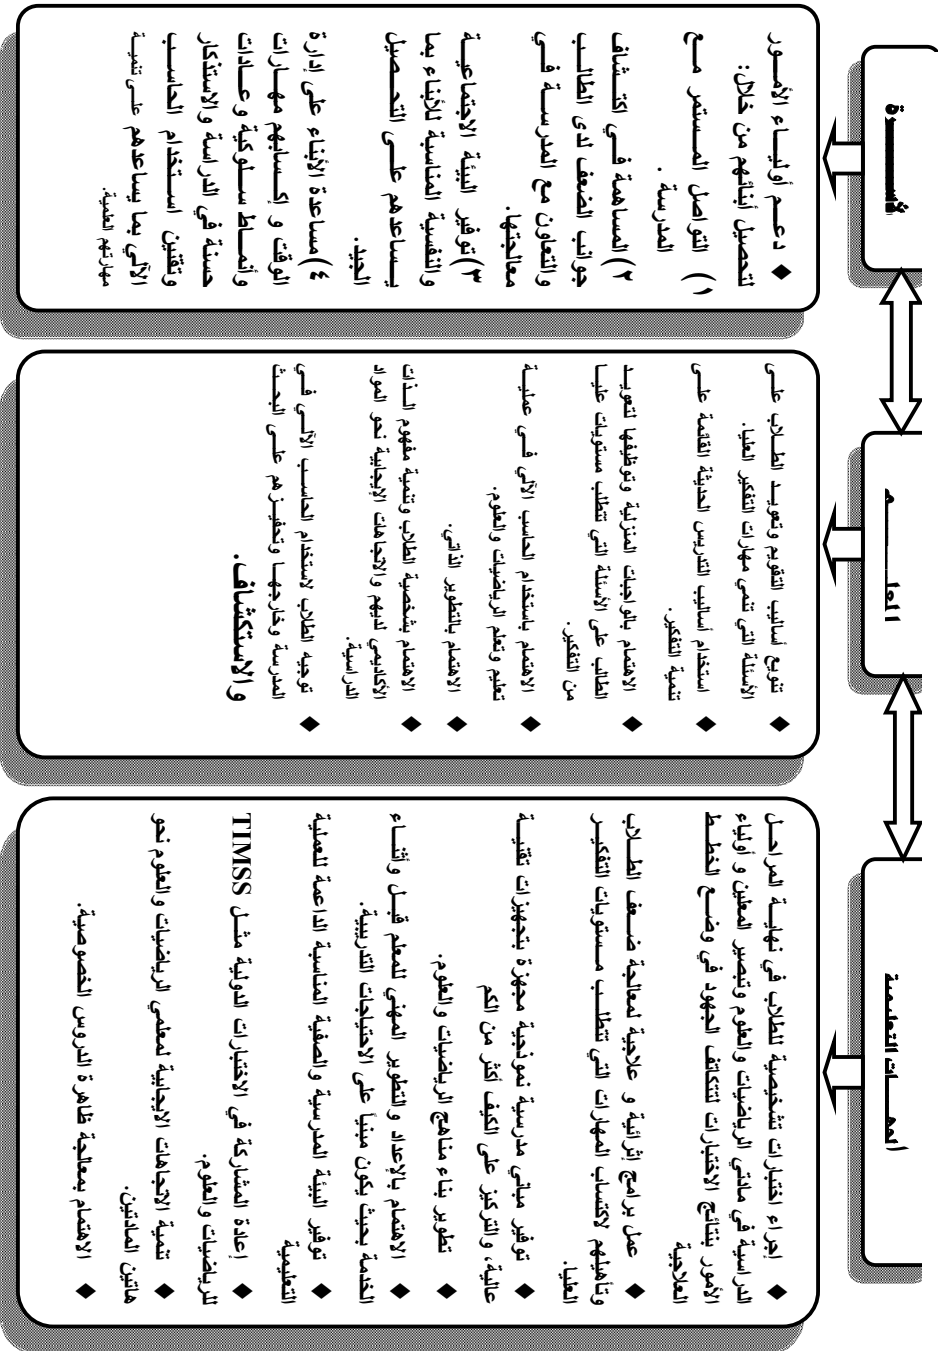 الأســـــــــرة
المعلـــــــــم
الجهـــــات التعليمية
♦ دعـــم أوليـــاء الأمـــور
لتحصيل أبنائهم من خلال:
١) التواصل المـــستمر مـــع
المدرسة .
٢)المساهمة فـــي اكتـــشاف
جوانب الضعف لدى الطالـــب
والتعاون مع المدرســـة فـــي
معالجتها.
٣)توفير البيئة الاجتماعيـــة
والنفسية المناسبة للأبناء بما
يـــساعدهم علـــى التحـــصيل
الجيد.
٤)مساعدة الأبناء على إدارة
الوقت و إكـــسابهم مهـــارات
وأنمـــاط ســـلوكية وعـــادات
حسنة في الدراسة والاستذكار
وتقنين اســـتخدام الحاســـب
الآلي بما يساعدهم علـــى تنميـــة
مهارتهم العلمية.
♦ تنويع أساليب التقويم وتعويـــد الطـــلاب علـــى
الأسئلة التي تنمي مهارات التفكير العليا.
♦ استخدام أساليب التدريس الحديثة القائمة علـــى
تنمية التفكير.
♦ الاهتمام بالواجبات المنزلية وتوظيفها لتعويـــد
الطالب على الأسئلة التي تتطلب مستويات عليـــا
من التفكير.
♦ الاهتمام باستخدام الحاسب الآلي فـــي عمليـــة
تعليم وتعلم الرياضيات والعلوم.
♦ الاهتمام بالتطوير الذاتي.
♦ الاهتمام بشخصية الطلاب وتنمية مفهوم الـــذات
الأكاديمي لديهم والاتجاهات الإيجابية نحو المواد
الدراسية.
♦ توجيه الطلاب لاستخدام الحاســـب الآلـــي فـــي
المدرسة وخارجهـــا وتحفيـــزهم علـــى البحـــث
والاستكشاف.
♦ إجراء اختبارات تشخيصية للطلاب في نهايـــة المراحـــل
الدراسية في مادتي الرياضيات والعلوم وتبصير المعلين و أولياء
الأمور بنتائج الاختبارات لتتكاتف الجهود في وضـــع الخطـــط
العلاجية
♦ عمل برامج إثرائية و علاجية لمعالجة ضـــعف الطـــلاب
وتأهيلهم لاكتساب المهارات التي تتطلـــب مـــستويات التفكيـــر
العليا.
♦ توفير مباني مدرسية نموذجية مجهزة بتجهيزات تقنيـــة
عالية، والتركيز على الكيف أكثر من الكم
♦ تطوير بناء مناهج الرياضيات والعلوم.
♦ الاهتمام بالإعداد والتطوير المهني للمعلم قبـــل وأثنـــاء
الخدمة بحيث يكون مبنياً على الاحتياجات التدريبية.
♦ توفير البيئة المدرسية والصفية المناسبة الداعمة للعملية
التعليمية
♦ إعادة المشاركة في الاختبارات الدولية مثـــل TIMSS
للرياضيات والعلوم.
♦ تنمية الاتجاهات الايجابية لمعلمي الرياضيات والعلوم نحو
هاتين المادتين.
♦ الاهتمام بمعالجة ظاهرة الدروس الخصوصية.